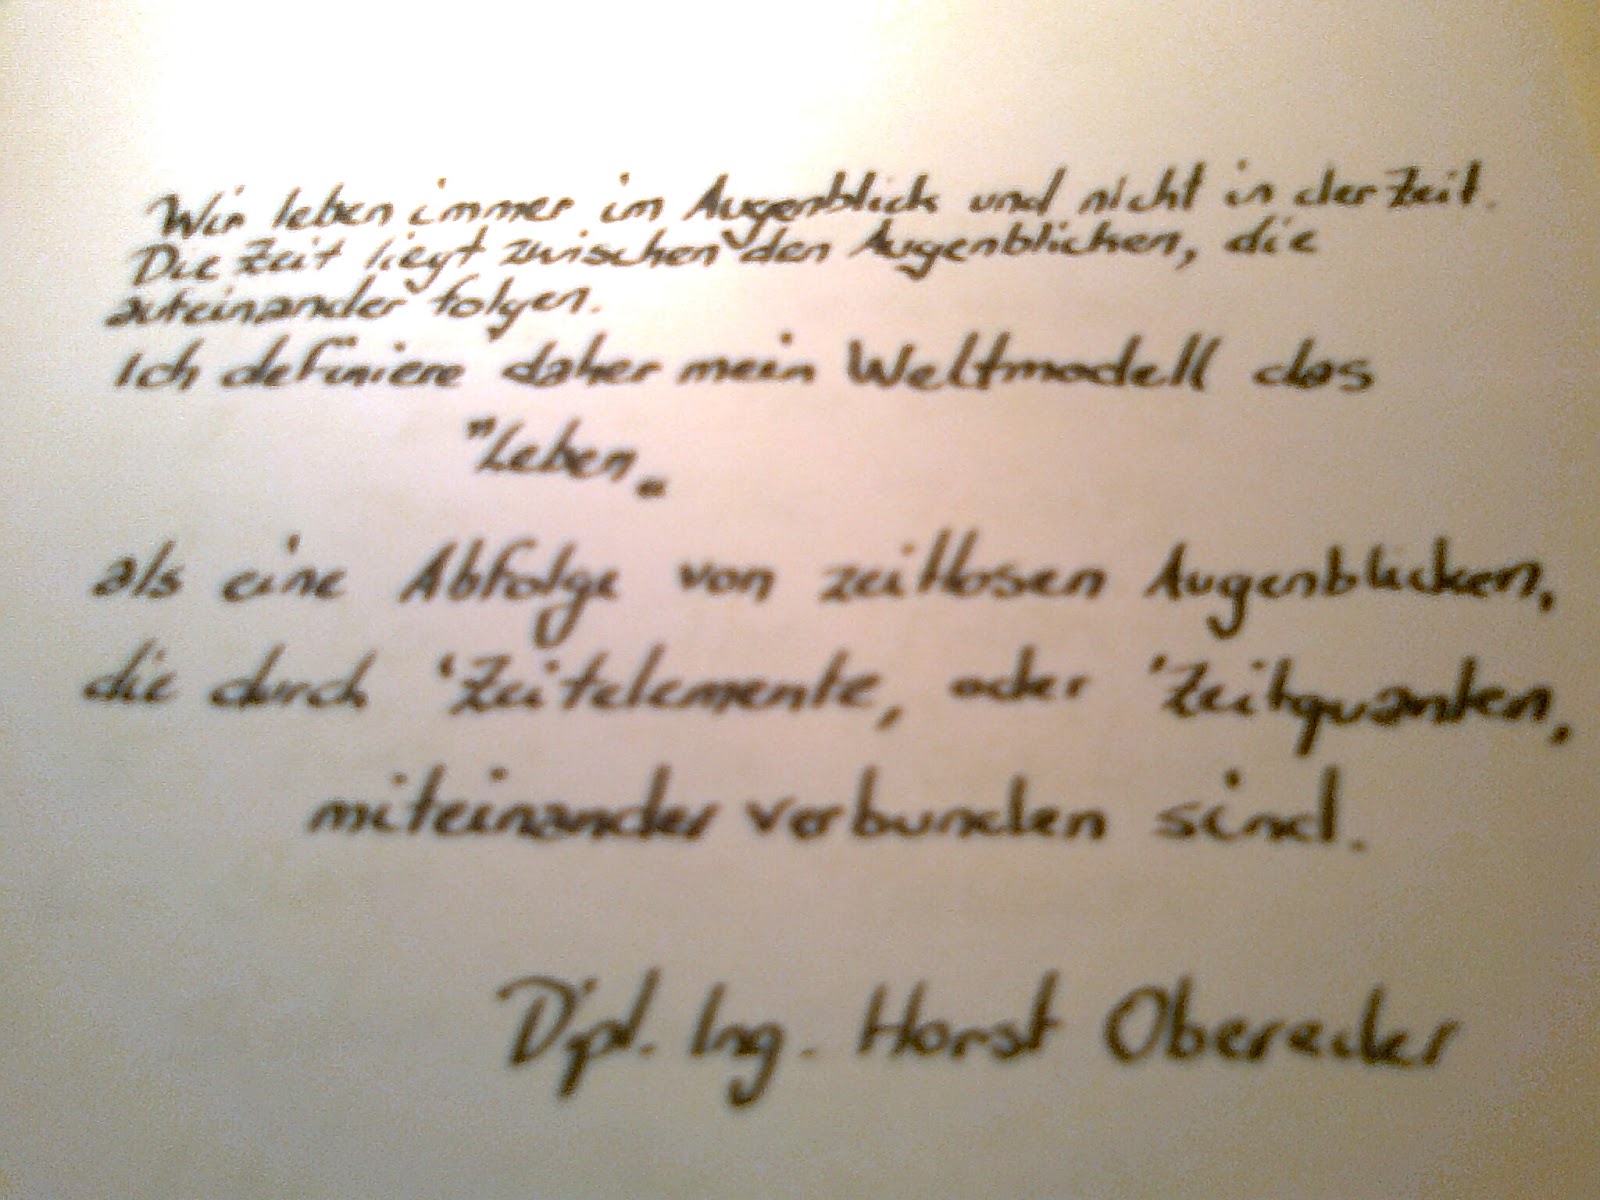 Wir leben immer im Augenblick und nicht in der Zeit.
Die Zeit liegt zwischen den Augenblicken, die
aufeinander folgen.
Ich definiere daher mein Weltmodell das
"Leben"
als eine Abfolge von zeitlosen Augenblicken,
die durch 'Zeitelemente, oder 'Zeitquanten,
miteinander verbunden sind.
Dipl. Ing. Horst Obereder